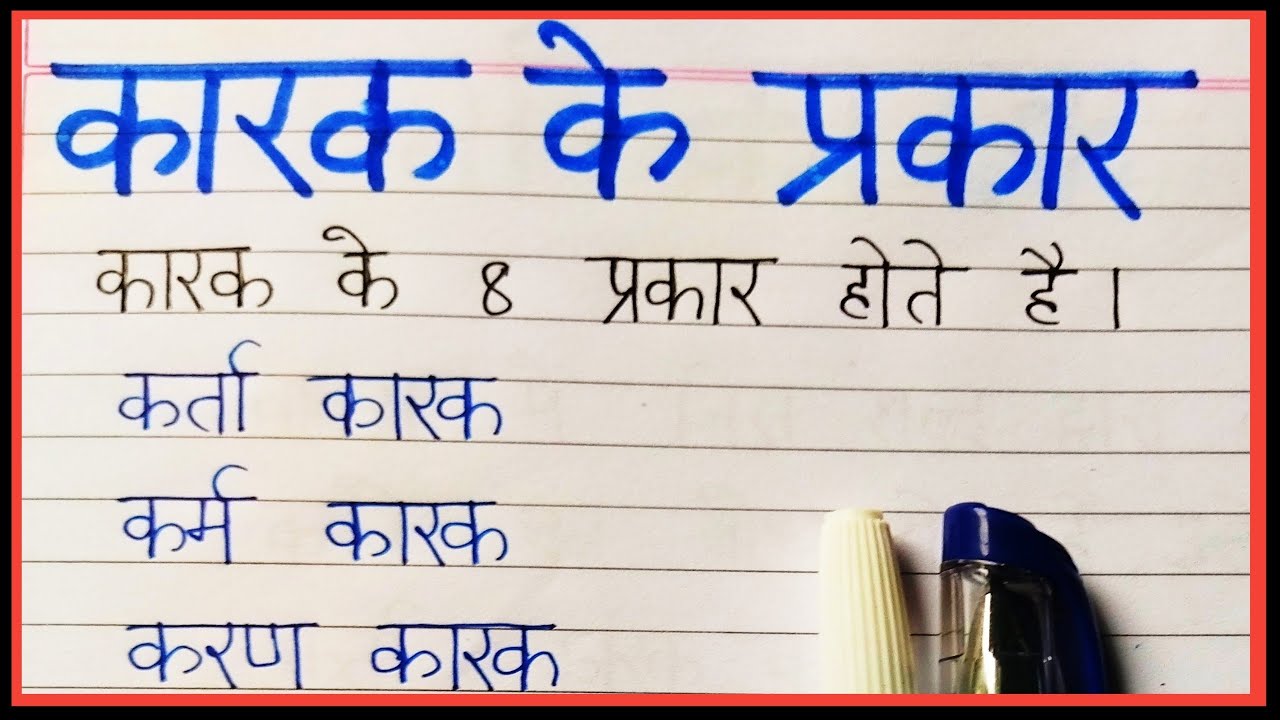 कारक के प्रकार
कारक के 8 प्रकार होते है।
कर्ता कारक
कर्म कारक
करण कारक